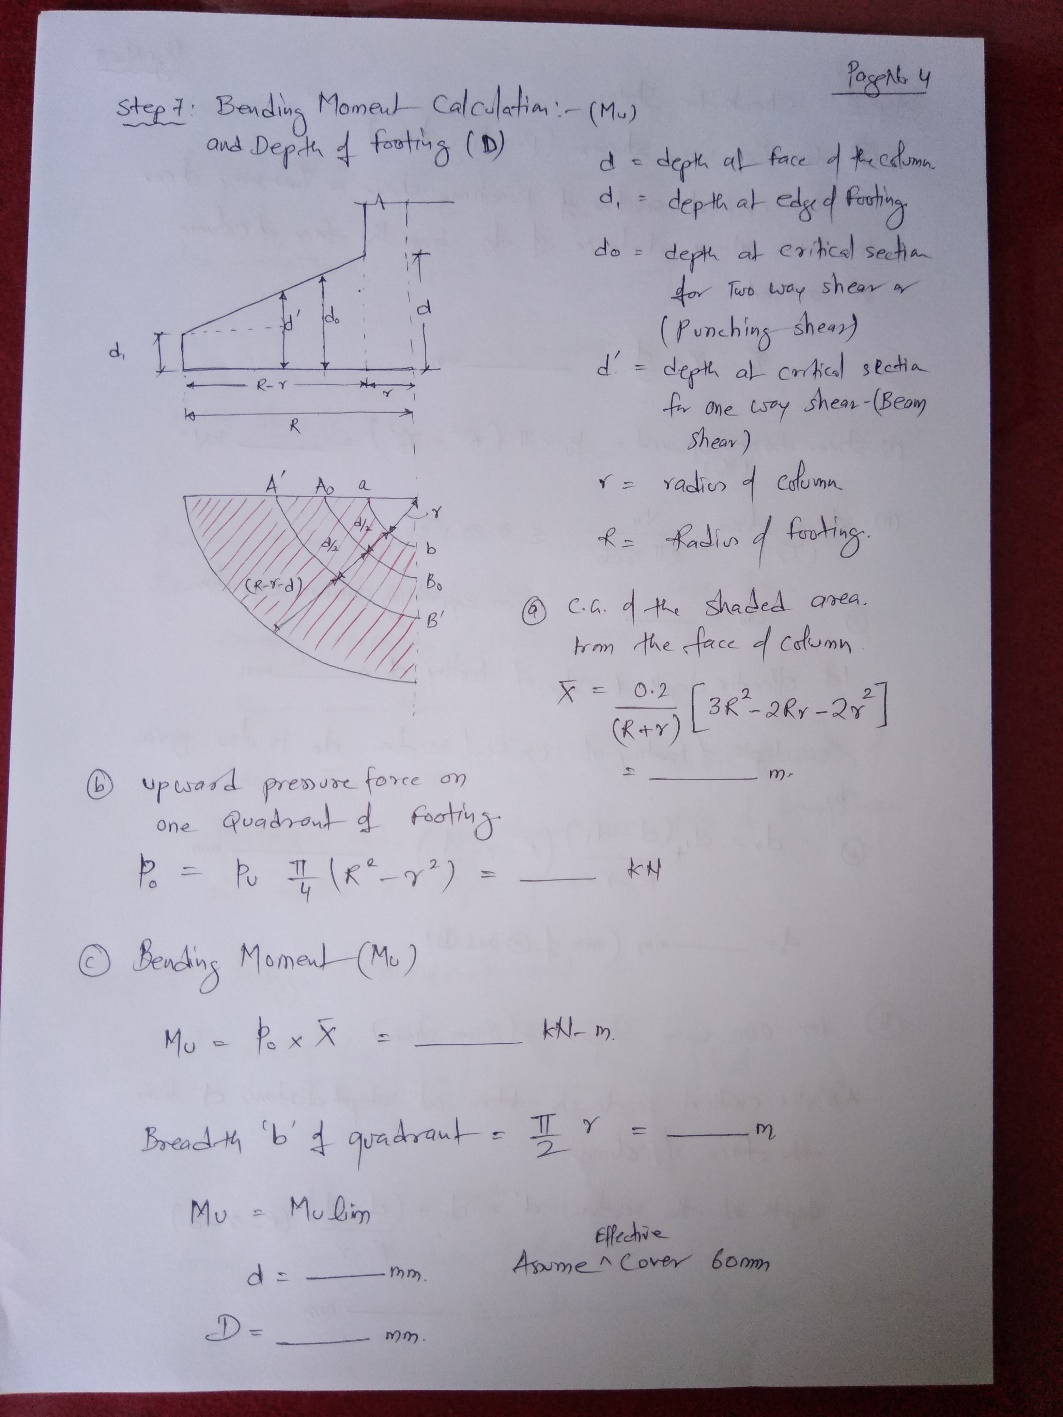 Page No 4
Step 7: Bending Moment Calculation:- (Mu)
and Depth of footing (D)
d = depth at face of the column
d₁ = depth at edge of footing
do = depth at critical section
for Two way shear or
(Punching shear)
d' = depth at critical section
for one way shear-(Beam
shear)
r = radius of column
R = Radius of footing.
d'
do
d
d₁
R-r
r
R
A'
Ao
a
r
d/2
d/2
b
Bo
(R-r-d)
B'
(a) C.G. of the shaded area.
from the face of column
x̄ = 0.2/(R+r) [3R²-2Rr-2r²]
= ______ m.
(b) upward pressure force on
one Quadrant of footing
Po = Pu π/4 (R²-r²) = ____ kN
(c) Bending Moment (Mu)
Mu = Po x X̄ = ______ kN-m.
Breadth 'b' of quadrant = π/2 r = ____ m
Mu = Mu lim
Effective
d = _____ mm. Assume ^ Cover 60mm
D = _____ mm.